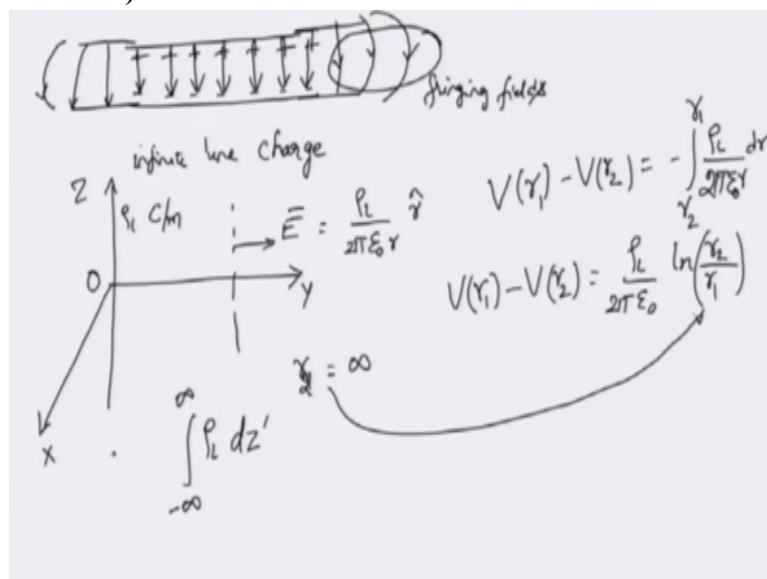 fringing fields
infinite line charge
Z
ρ_L C/m
E̅ = ρ_L / 2πε₀r r̂
V(r₁) - V(r₂) = - ∫_{r₂}^{r₁} ρ_L / 2πε₀r dr
O
y
V(r₁) - V(r₂) = ρ_L / 2πε₀ ln(r₂/r₁)
r₂ = ∞
x
∫_{-∞}^{∞} ρ_L dz'